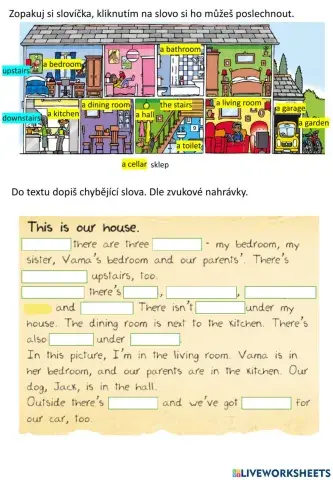 Zopakuj si slovíčka, kliknutím na slovo si ho můžeš poslechnout.
a bathroom
a bedroom
upstairs
a dining room
the stairs
a living room
a garage
a kitchen
a hall
downstairs
a garden
a toilet
a cellar sklep
Do textu dopiš chybějící slova. Dle zvukové nahrávky.
This is our house.
there are three - my bedroom, my
sister, Vama's bedroom and our parents'. There's
upstairs, too.
there's , ,
and There isn't under my
house. The dining room is next to the kitchen. There's
also under .
In this picture, I'm in the living room. Vama is in
her bedroom, and our parents are in the kitchen. Our
dog, Jack, is in the hall.
Outside there's and we've got for
our car, too.
LIVEWORKSHEETS